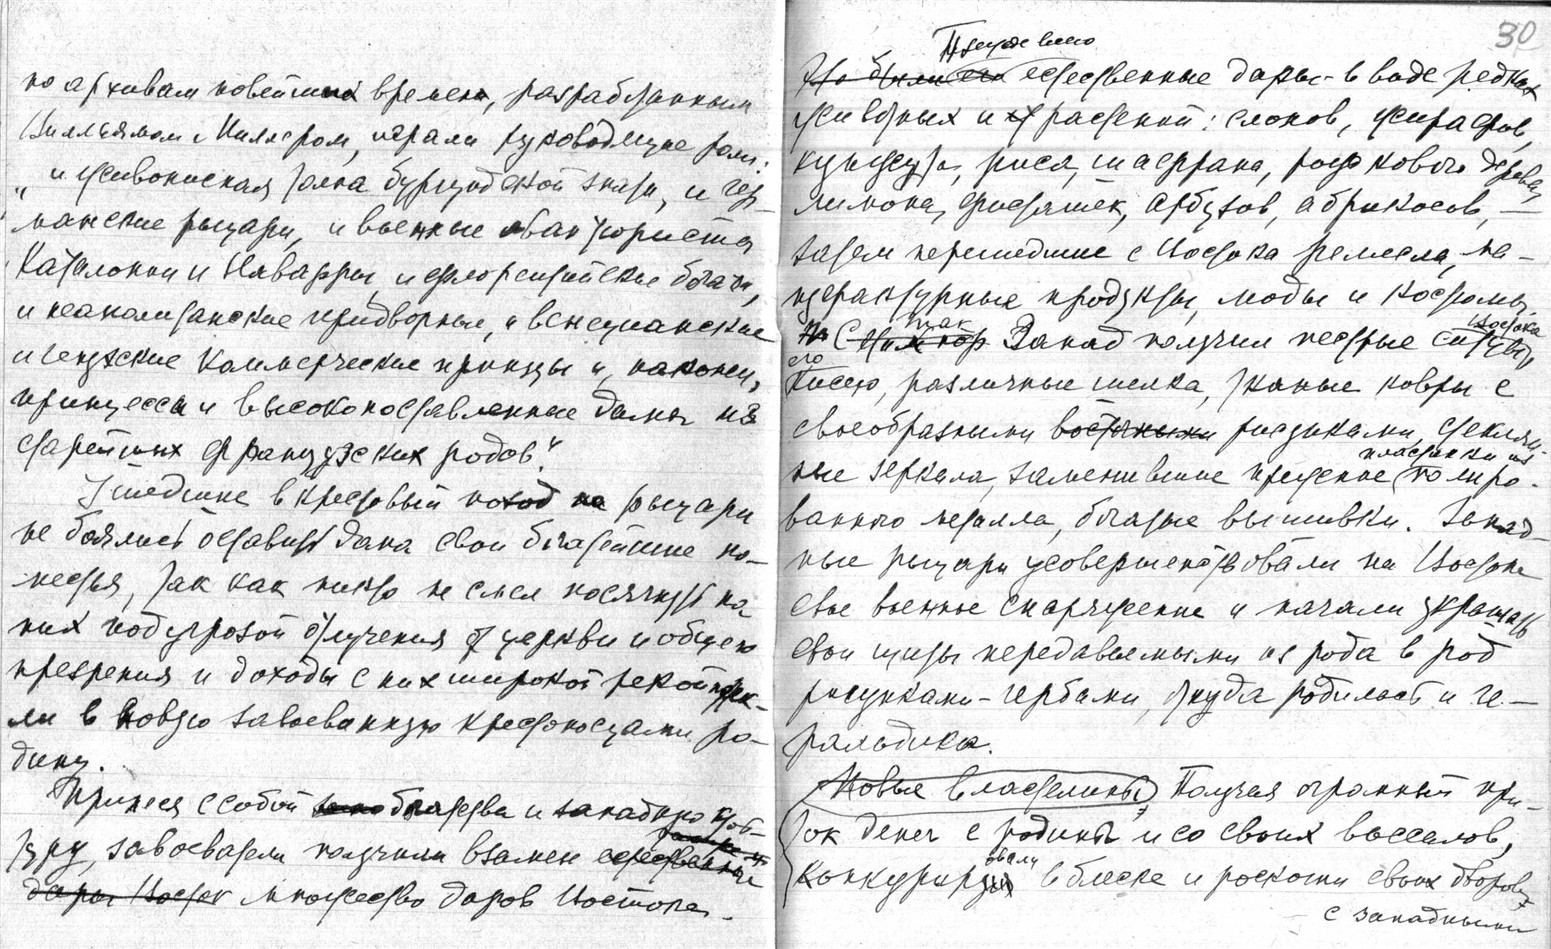 по архивам новейших времен, разработанным
Вильямом Миллером, играли руководящие роли:
„и живописная толпа бургундской знати, и гер-
манские рыцари, и военные авантюристы
Каталонии и Наварры, и флорентийские богачи,
и неаполитанские придворные, и венецианские
и генуэзские коммерческие принцы и, наконец,
принцессы и высокопоставленные дамы из
старейших французских родов“.
Ушедшие в крестовый поход рыцари
не боялись оставить дома свои богатейшие по-
местья, так как никто не смел посягнуть на
них под угрозой отлучения от церкви и общего
презрения и доходы с них широкой рекой тек-
ли в новую завоеванную крестоносцами ро-
дину.
Принеся с собой богатства и западную куль-
туру, завоеватели получили взамен естественные
дары Восток множество даров Востока.
30
Прежде всего
Это были его естественные дары - в виде редких
животных и растений: слонов, жирафов,
кунжута, риса, шафрана, рожкового дерева,
лимона, фисташек, арбузов, абрикосов, —
затем перешедшие с Востока ремесла, ма-
нуфактурные продукты, моды и костюмы.
так Востока
С тих пор Запад получил пестрые ситцы,
его
кисею, различные шелка, тканые ковры с
своеобразными восточными рисунками, стеклян-
пластинки из
ные зеркала, заменившие прежние полиро-
ванного металла, богатые вышивки. Запад-
ные рыцари усовершенствовали на Востоке
свое военное снаряжение и начали украшать
свои щиты передаваемыми из рода в род
рисунками - гербами, откуда родилась и ге-
ральдика.
Новые властелины, Получая огромный при-
ток денег с родины и со своих вассалов,
овали
конкурир в блеске и роскоши своих дворов
с западными